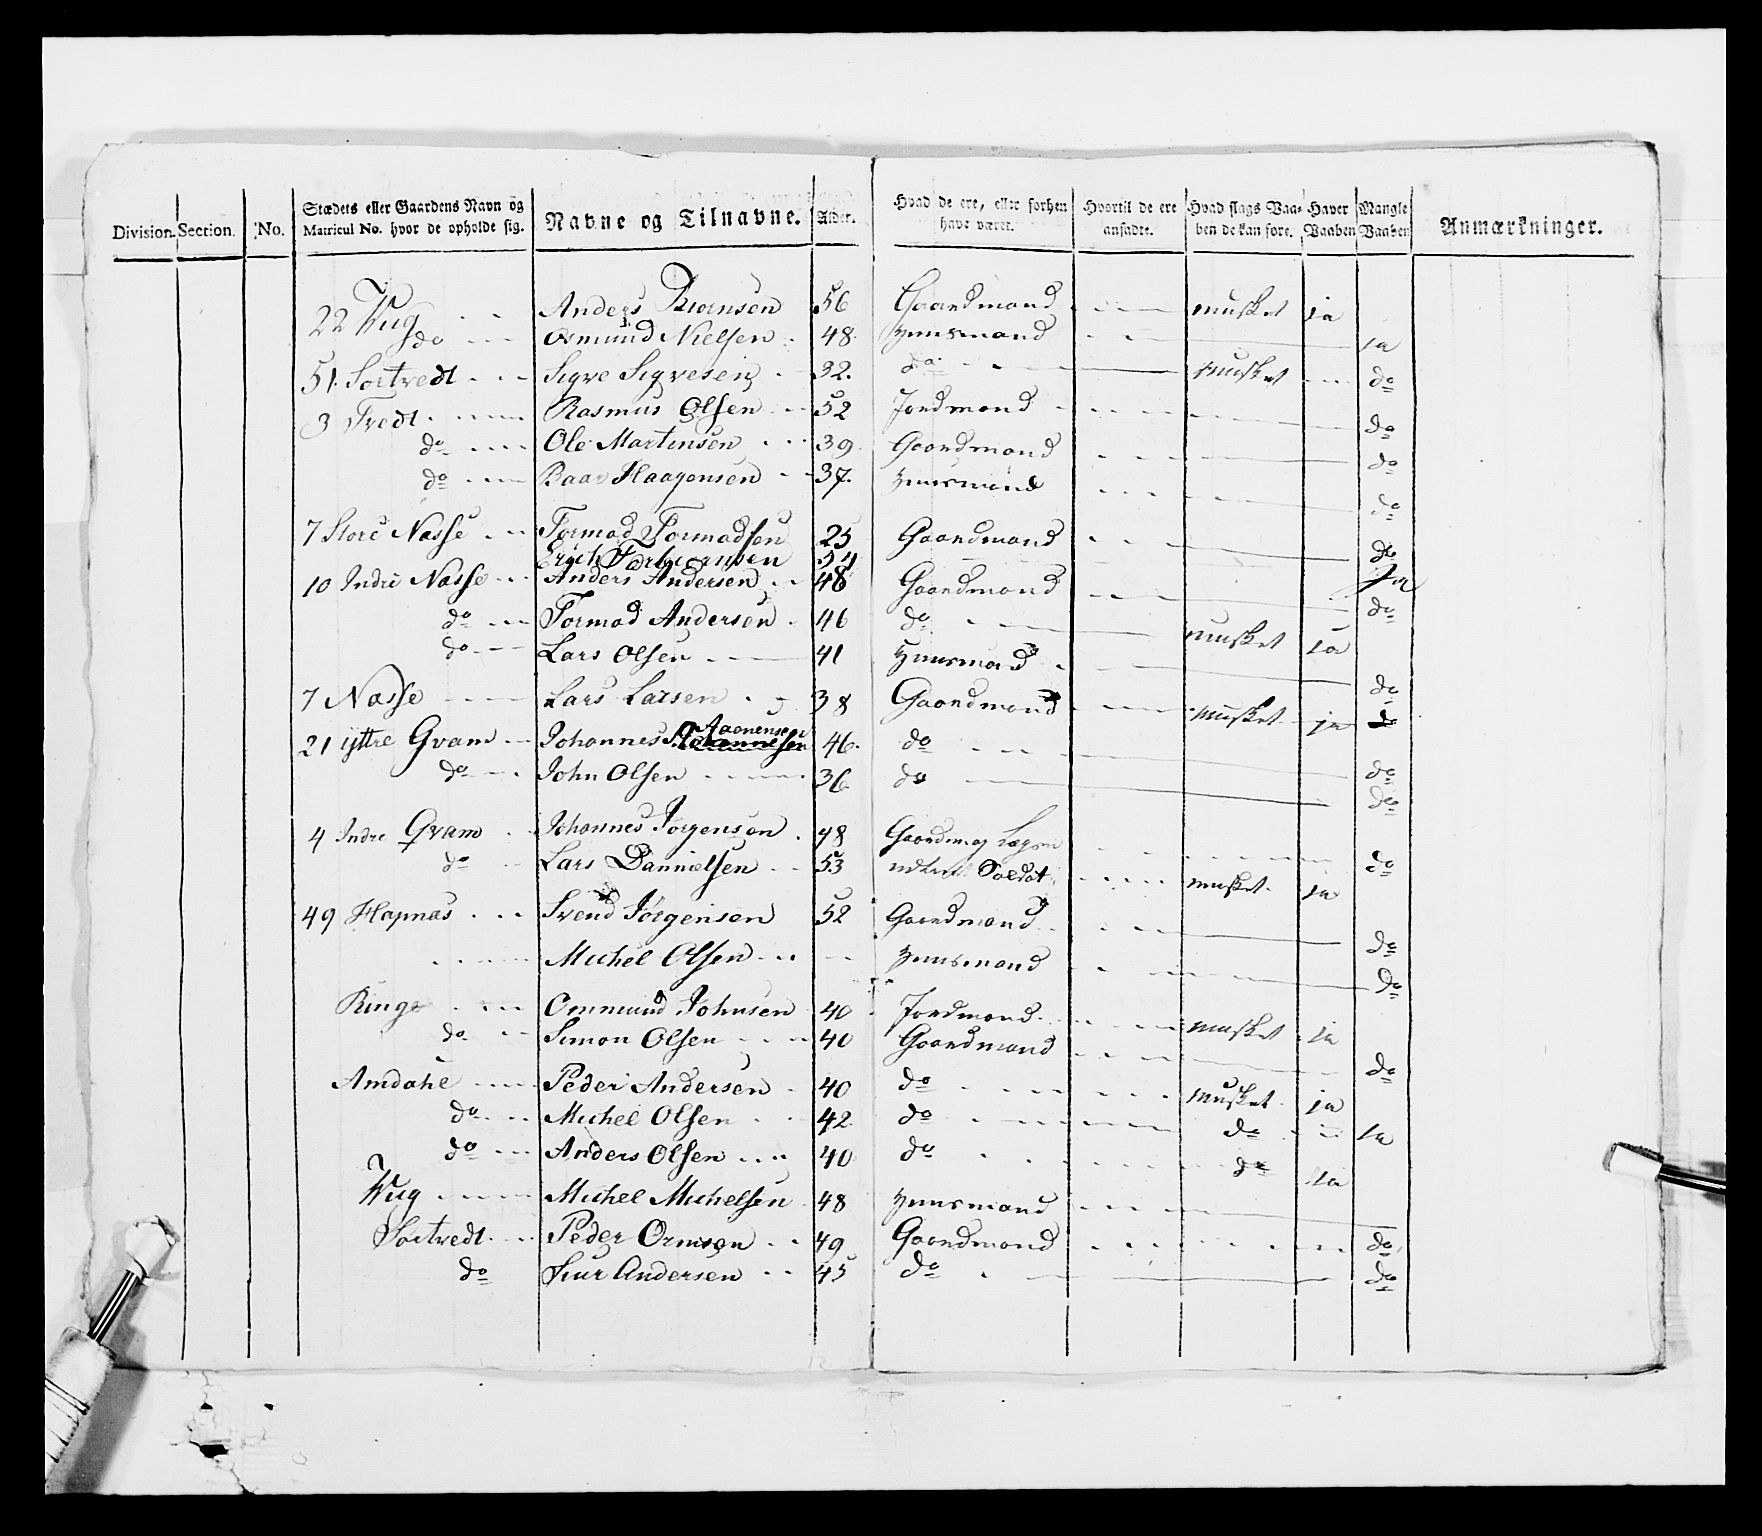 Division. Section. No. Stædets eller Gaardens Navn og Matricul No. hvor de opholde sig. Navne og Tilnavne. Alder. Hvad de ere, eller forhen have været. Hvortil de ere ansadte. Hvad slags Vaaben de kan føre. Haver Vaaben Mangle Vaaben Anmærkninger.
22 Vug Anders Biørnsen 56 Gaardmand musket ja
do Osmund Nielsen 48 Huusmand ja
51 Sortvedt Sigve Sigvesen 32. do musket do
3 Tvedt Rasmus Olsen 52 Jordmand do
do Ole Martinsen 39 Gaardmand do
do Baar Haagensen 37. Huusmand do
7 Store Nasse Tormod Tormodsen 25 Gaardmand do
Erich Torbiørnsen 54 Ja
10 Indre Nasse Anders Andersen 48 Gaardmand do
do Tormod Andersen 46 do musket ja
do Lars Olsen 41 Huusmand do
7 Nasse Lars Larsen 38 Gaardmand musket ja do
21 ÿttre Qvam Johannes Johannesen Aanensen 46. do do
do John Olsen 36 do do
4 Indre Qvam Johannes Jørgensen 48 Gaardm og do
do Lars Dannielsen 53 Soldat musket ja
49 Hapnæs Svend Jørgensen 52 Gaardmand do
Michel Olsen Huusmand do
Ringe Ommund Johnsen 40 Jordmand musket ja
do Simon Olsen 40 Gaardmand do
Amdahl Peder Andersen 40 do musket ja
do Michel Olsen 42 do do ja
do Anders Olsen 40 do do ja
Vug Michel Michelsen 48 Huusmand do
Sortvedt Peder Ormsen 49 Gaardmand do
do Siur Andersen 45 do